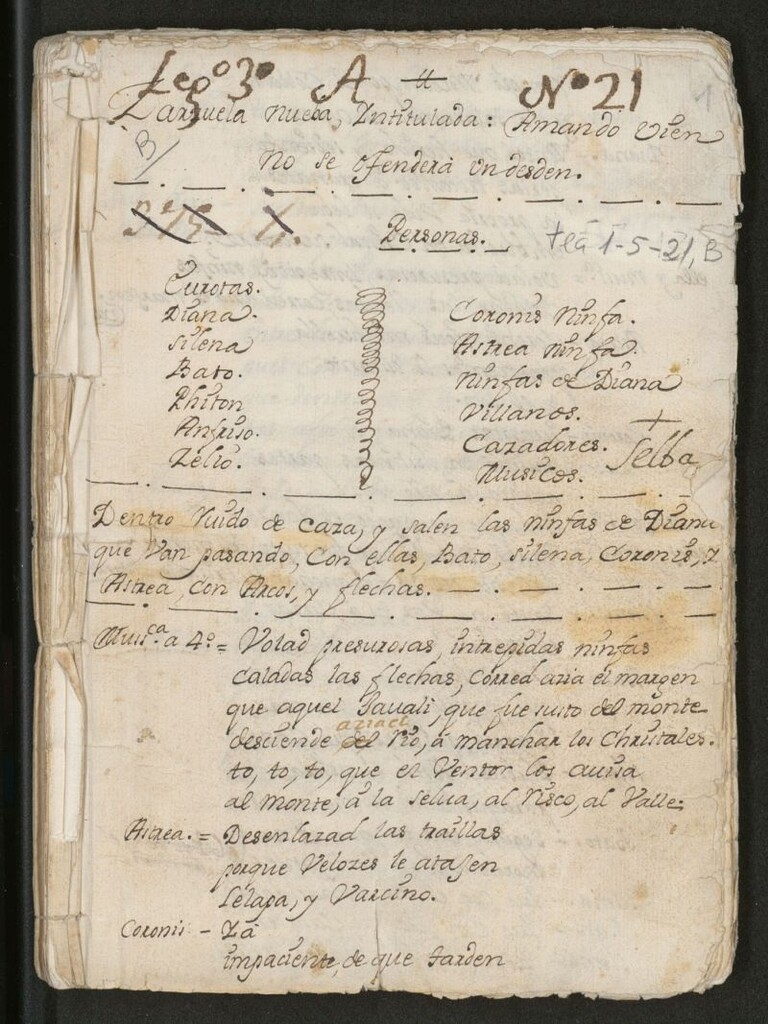 Leg.º 3º A N.º 21
1
Zarzuela nueba, Yntitulada: Amando vien
B/
no se ofenderà un desden.
Personas.
tea 1-5-21, B
Eurotas.
Diana.
Silena
Bato.
Phiton
Anfriso.
Zelio.
Coronis Ninfa.
Astrea ninfa.
Ninfas de Diana
Villanos.
Cazadores.
Musicos.
+
Selba
Dentro ruido de caza, y salen las ninfas de Diana
que van pasando, con ellas, Bato, Silena, Coronis, y
Astrea, con Arcos, y flechas.
Mus.ca a 4.º = Volad presurosas, intrepidas ninfas
caladas las flechas, corred azia el margen
que aquel Javali, que fue susto del monte
desciende del rio, à manchar los Christales.
to, to, to, que el Ventor los auisa
al monte, à la selua, al risco, al Valle;
Astrea. = Desenlazad las traillas
porque Velozes le atajen
Lélapa, y Varcino.
Coronis - Ya
impaciente, de que tarden